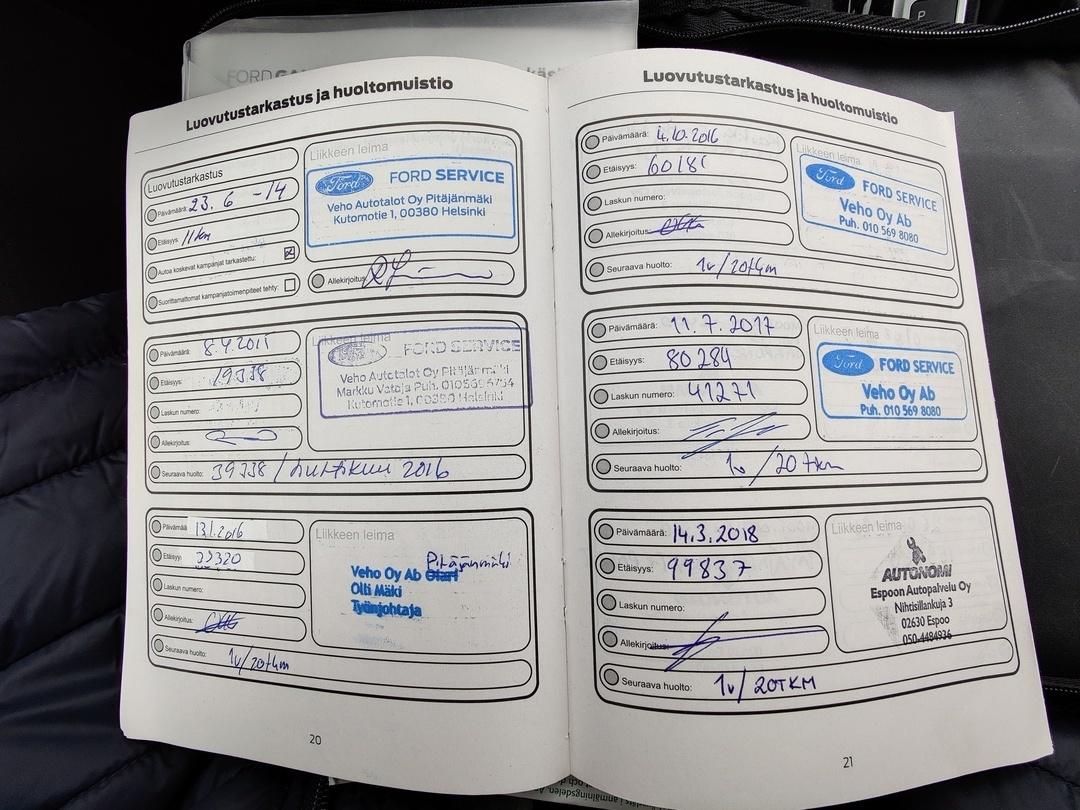 FORD
Luovutustarkastus ja huoltomuistio
Luovutustarkastus
Päivämäärä: 23. 6 -14
Etäisyys: 11km
Autoa koskevat kampanjat tarkastettu:
Suorittamattomat kampanjatoimenpiteet tehty:
Liikkeen leima
Ford FORD SERVICE
Veho Autotalot Oy Pitäjänmäki
Kutomotie 1, 00380 Helsinki
Allekirjoitus:
Päivämäärä:
Etäisyys: 19338
Laskun numero:
Allekirjoitus:
Seuraava huolto: 39338 / huhtikuu 2016
Liikkeen leima
FORD SERVICE
Veho Autotalot Oy Pitäjänmäki
Markku Vataja Puh.
Kutomotie 1, 00380 Helsinki
Päivämää 13.1.2016
Etäisyy
Laskun numero:
Allekirjoitus:
Seuraava huolto: 1v/20tkm
Liikkeen leima
Pitäjänmäki
Veho Oy Ab Olari
Olli Mäki
Työnjohtaja
20
Luovutustarkastus ja huoltomuistio
Päivämäärä: 4.10.2016
Etäisyys:
Laskun numero:
Allekirjoitus:
Seuraava huolto: 1v/20tkm
Liikkeen leima
Ford FORD SERVICE
Veho Oy Ab
Puh. 010 569 8080
Päivämäärä: 11.7.2017
Etäisyys: 80284
Laskun numero: 41271
Allekirjoitus:
Seuraava huolto: 1v/20tkm
Liikkeen leima
Ford FORD SERVICE
Veho Oy Ab
Puh. 010 569 8080
Päivämäärä: 14.3.2018
Etäisyys: 99837
Laskun numero:
Allekirjoitus:
Seuraava huolto: 1v/20TKM
Liikkeen leima
AUTONOMI
Espoon Autopalvelu Oy
Nihtisillankuja 3
02630 Espoo
050-4484936
21